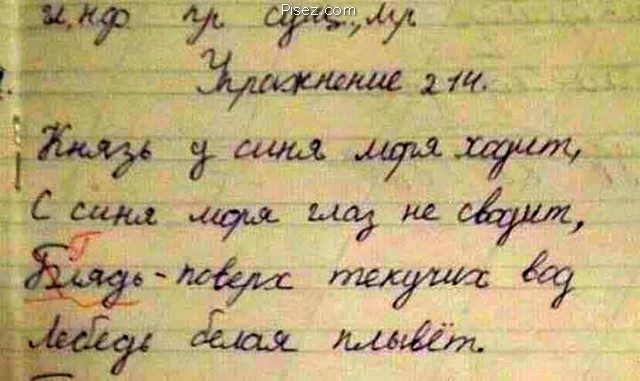 Pisez.com
инф пр сущ., мр
Упражнение 214.
Князь у синя моря ходит,
С синя моря глаз не сводит,
Г
Блядь - поверх текучих вод
Лебедь белая плывёт.